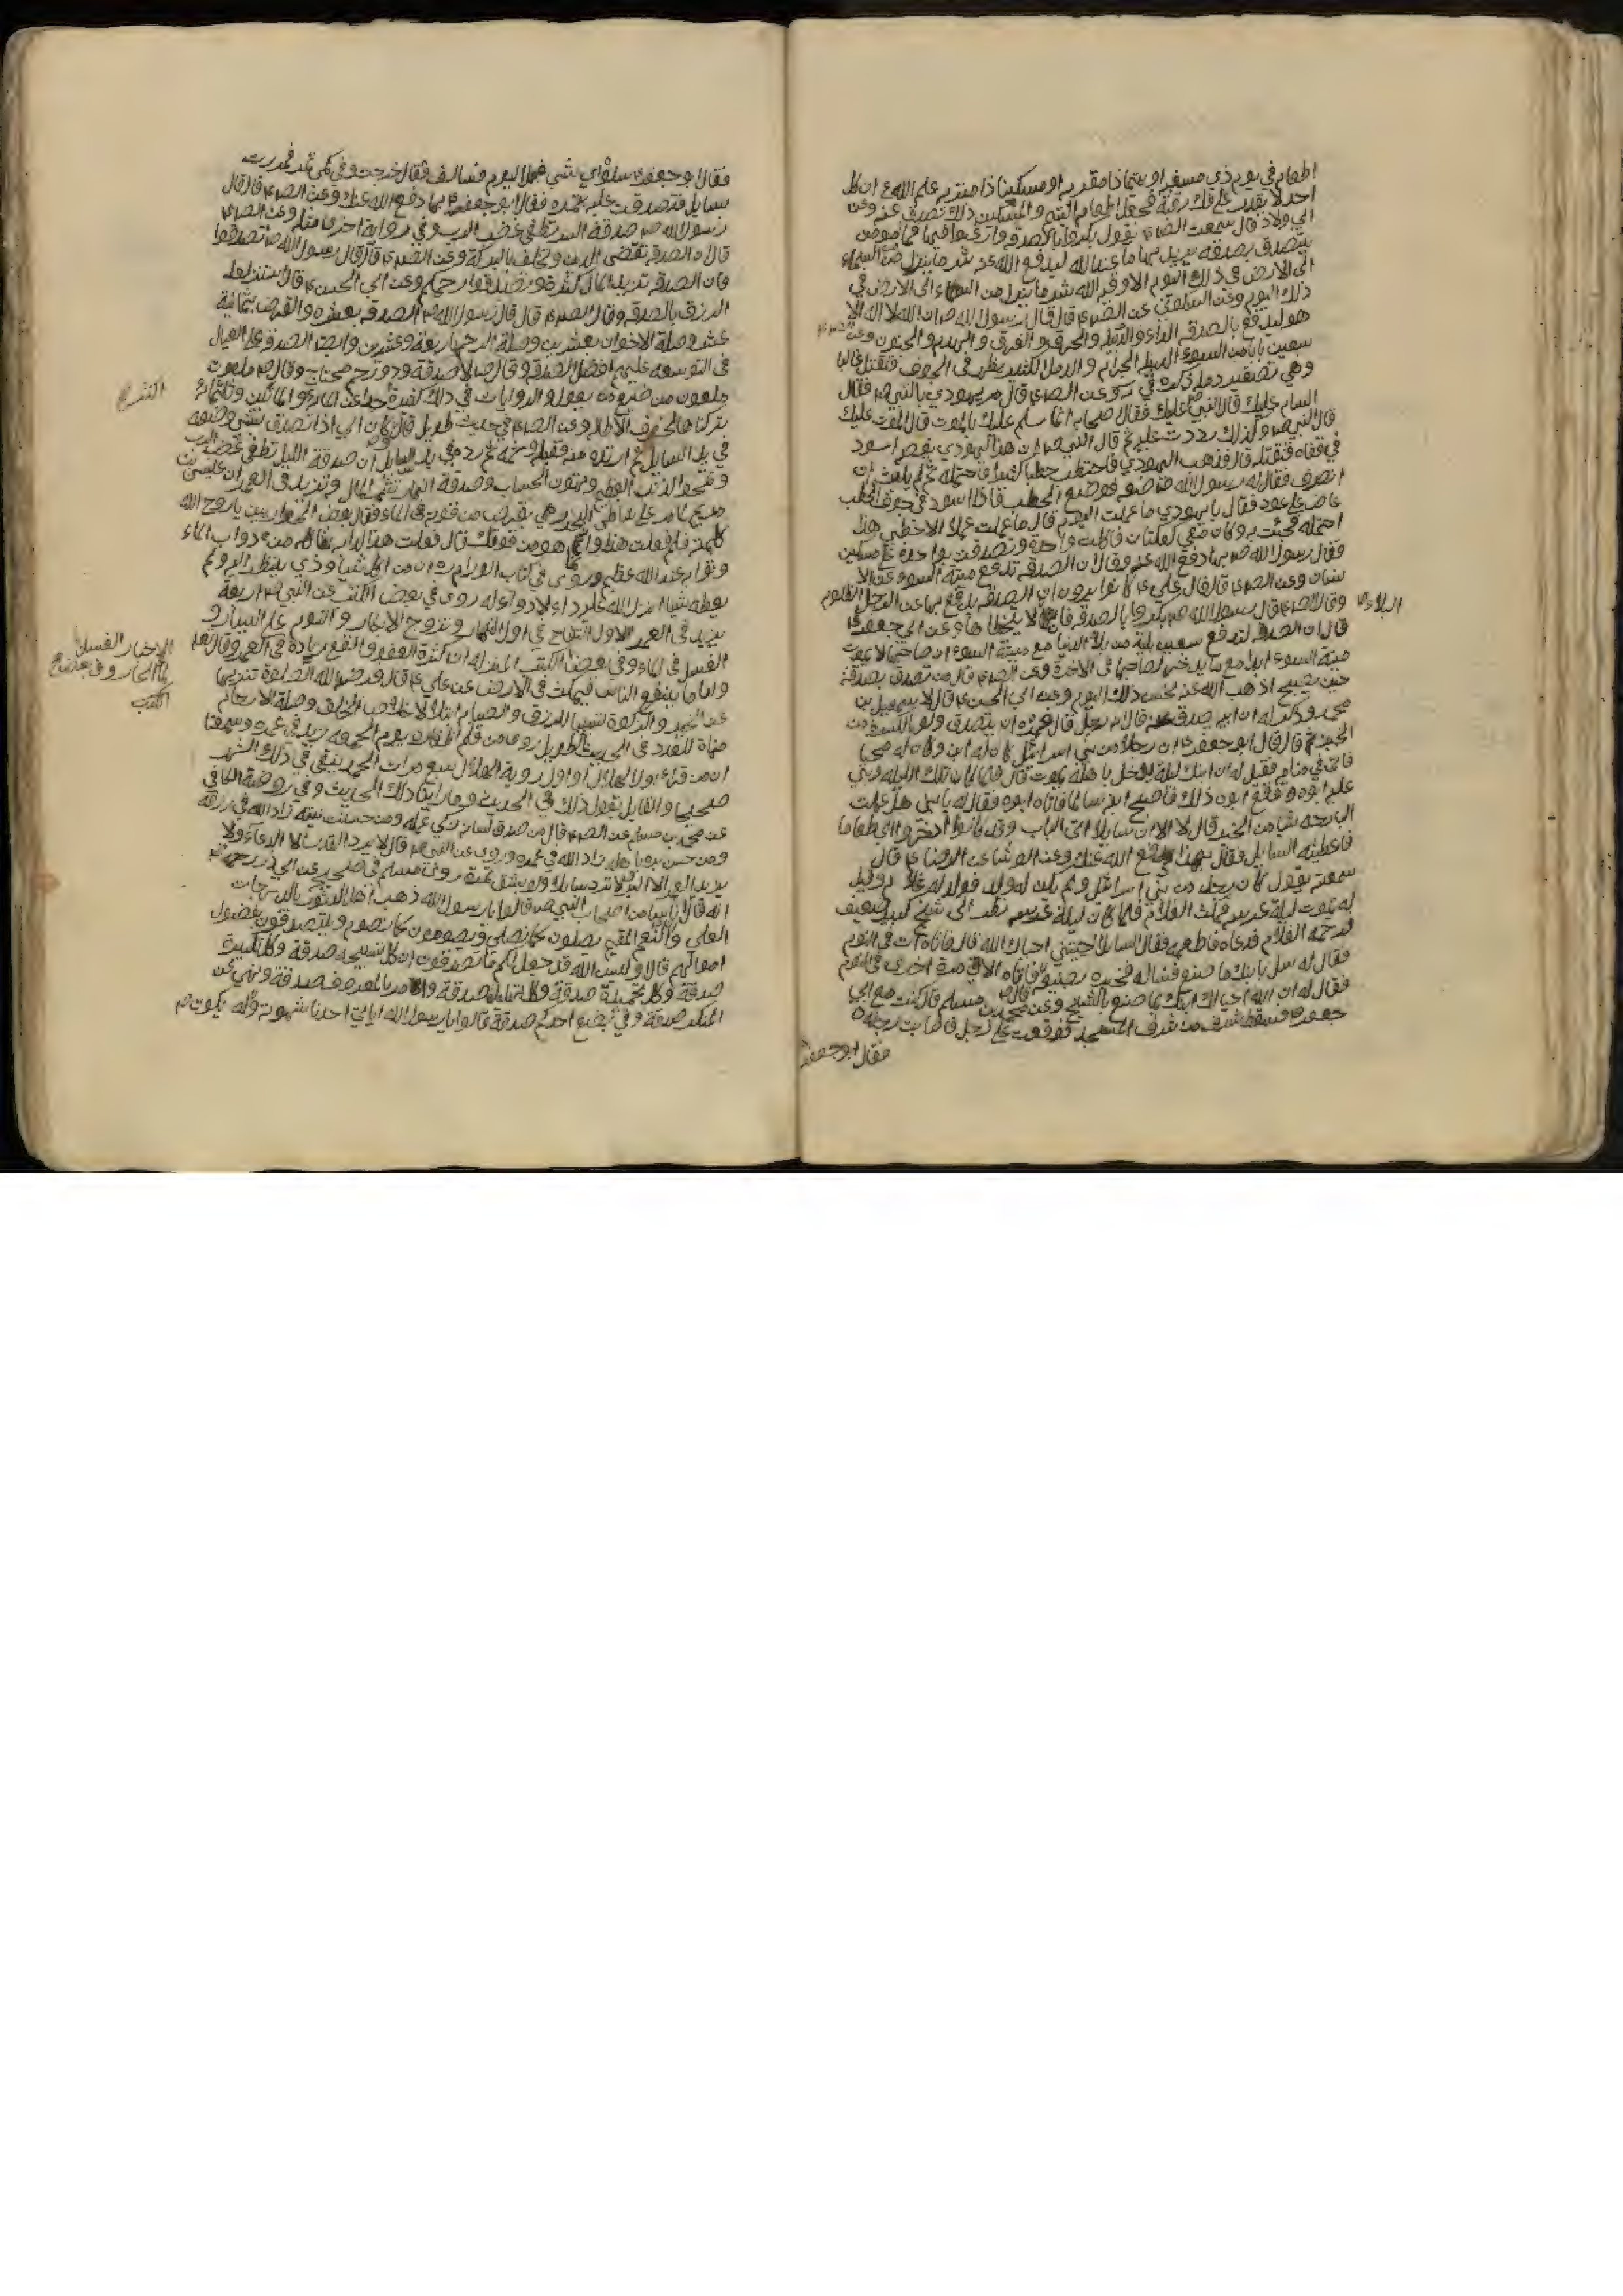 اطعام في يوم ذي مسغبة او يتيما ذا مقربة او مسكينا ذا متربة علم الله ع ان كل
احد لا يقدر على فك رقبة فجعل اطعام اليتيم والمسكين ذلك تصدق عنه وعن
ابي ولاد قال سمعت الص ع يقول بكروا بالصدقة وارغبوا فيها فما من مؤمن
يتصدق بصدقة يريد بها ما عند الله ليدفع الله عنه شر ما ينزل من السماء
الى الارض في ذلك اليوم الا وقاه الله شر ما ينزل من السماء الى الارض في
ذلك اليوم وعن السكوني عن الص ع قال قال رسول الله ص ان الله لا اله الا
هو ليدفع بالصدقة الداء والدبيلة والحرق والغرق والهدم والجنون وعد ص
سبعين بابا من السوء الدبيلة الجراح والدمل الكبير يظهر في الجوف وتقتل غالبا
وهي تصغير دمل وعن الص ع قال مر يهودي بالنبي ص فقال
السام عليك قال النبي ص عليك فقال صحابه انما سلم عليك بالموت قال الموت عليك
قال النبي ص وكذلك رددت عليه ثم قال النبي ص ان هذا اليهودي يعضه اسود
في قفاه فتقتله قال فذهب اليهودي فاحتطب حطبا كثيرا فاحتمله ثم لم يلبث ان
انصرف فقال له رسول الله ص ضعه فوضع الحطب فاذا اسود في جوف الحطب
عاض على عود فقال يا يهودي ما عملت اليوم قال ما عملت عملا الا حطبي هذا
احتملته فجئت به وكان معي كعكتان فاكلت واحدة وتصدقت بواحدة على مسكين
فقال رسول الله ص بها دفع الله عنه وقال ان الصدقة تدفع ميتة السوء عن الا
نسان وعن الص ع قال قال علي ع كانوا يرون ان الصدقة يدفع بها عن الرجل المظلوم
وقال الص ع قال رسول الله ص بكروا بالصدقة فان البلاء لا يتخطاها وعن ابي جعفر ع
البلاء ص
قال ان الصدقة لتدفع سبعين بلية من بلايا الدنيا مع ميتة السوء ان صاحبها لا يموت
ميتة السوء ابدا مع ما يدخر لصاحبها في الاخرة وعن الص ع قال من تصدق بصدقة
حين يصبح اذهب الله عنه نحس ذلك اليوم وعن ابي الحسن ع قال لاسمعيل بن
محمد وذكر له ان ابنه صدق عنه قال انه رجل قال فمره ان يتصدق ولو بالكسرة من
الخبز ثم قال قال ابو جعفر ع ان رجلا من بني اسرائيل كان له ابن وكان له محبا
فاتي في منامه فقيل له ان ابنك ليلة يدخل باهله يموت قال فلما كان تلك الليلة وبني
عليه ابوه توقع ابوه ذلك فاصبح ابنه سالما فاتاه ابوه فقال له يا بني هل عملت
البارحة شيئا من الخير قال لا الا ان سايلا اتى الباب وقد كانوا ادخروا لي طعاما
فاعطيته السايل فقال بهذا دفع الله عنك وعن الوشا عن الرضا ع قال
سمعته يقول كان رجل من بني اسرائيل ولم يكن له ولد فولد له غلام وقيل
له يموت ليلة عرسه فمكث الغلام فلما كان ليلة عرسه نظر الى شيخ كبير ضعيف
فرحمه الغلام فدعاه فاطعمه فقال السايل احييتني احياك الله قال فاتاه ات في النوم
فقال له سل ابنك ما صنع فساله فخبره بصنيعه فاتاه الاتي مرة اخرى في النوم
فقال له ان الله احيا لك ابنك بما صنع بالشيخ وعن محمد بن مسلم قال كنت مع ابي
جعفر ع فسقط شرف من شرف المسجد فوقعت على رجل فما ضرت رجله
فقال ابو جعفر ع
فقال ابو جعفر ع سلوه اي شيء عمل اليوم فسالوه فقال خرجت وفي كمي تمر فمررت
بسايل فتصدقت عليه بتمرة فقال ابو جعفر ع بها دفع الله عنك وعن الص ع قال قال
رسول الله ص صدقة السر تطفي غضب الرب وفي رواية اخرى مثله وعن الص ع
قال ان الصدقة تقضي الدين وتخلف بالبركة وعن الص ع قال قال رسول الله ص تصدقوا
فان الصدقة تزيد المال كثرة وتصدقوا رحمكم وعن ابي الحسن ع قال استنزلوا
الرزق بالصدقة وقال الص ع قال قال رسول الله ص الصدقة بعشرة والقرض بثمانية
عشر وصلة الاخوان بعشرين وصلة الرحم باربعة وعشرين وايضا الصدقة على العيال
في التوسعة عليهم افضل الصدقة وقال ص لا صدقة وذو رحم محتاج وقال ص ملعون
ملعون من ضيع من يعول والروايات في ذلك كثيرة جدا
تركناها لخوف الاطالة وعن الص ع في حديث طويل قال كان ابي اذا تصدق بشيء وضعه
في يد السايل ثم ارتده منه فقبله وشمه ثم رده في يد السايل ان صدقة الليل تطفي غضب الرب
وتمحو الذنب العظيم وتهون الحساب وصدقة النهار تثمر المال وتزيد في العمر ان عيسى بن
مريم لما مر على شاطي البحر رمى بقرص من قوته في الماء فقال بعض الحواريين يا روح الله
كلمته فلم فعلت هذا وانما هو من قوتك قال فعلت هذا لدابة تاكله من دواب الماء
وثوابه عند الله عظيم وروي في كتاب الورام ره ان من اكل شيئا وذي ينظر اليه ولم
يعطه شيئا انزل الله عليه داء لا دواء له روى في بعض الكتب عن النبي ص اربعة
يزيد في العمر الاول النكاح في اول النهار وتزوج الابكار والنوم على اليسار و
الغسل في الماء وفي بعض الكتب المنزلة ان كثرة العقر والنفع زيادة في العمر وقال تعالى
واما ما ينفع الناس فيمكث في الارض عن علي ع قال فرض الله الصلوة تنزيها
عن الكبر والزكوة تسبيبا للرزق والصيام ابتلاء لاخلاص الخلق وصلة الارحام
منماة للعدد في الحديث الطويل روي من قلم اظفاره يوم الجمعة يزيد في عمره وسمعنا
ان من قراء اول الهلال او اول رؤية الهلال سبع مرات الحمد يبقى في ذلك الشهر
صحيحا والقايل يقول ذلك في الحديث وما راينا ذلك الحديث وفي روضة الكافي
عن محمد بن مسلم عن الص ع قال من صدق لسانه زكى عمله ومن حسنت نيته زاد الله في رزقه
ومن حسن بره باهله زاد الله في عمره وروي عن النبي ص قال لا يرد القدر الا الدعاء ولا
يزيد العمر الا البر لا ترد سايلا ولو بشق تمرة روى مسلم في صحيحه عن ابي ذر رحمه
انه قال اناسا من اصحاب النبي ص قالوا يا رسول الله ذهب اهل الدثور بالدرجات
العلى والنعيم المقيم يصلون كما نصلي ويصومون كما نصوم ويتصدقون بفضول
اموالهم قال اوليس الله قد جعل لكم ما تصدقون ان كل تسبيحة صدقة وكل تكبيرة
صدقة وكل تحميدة صدقة وكل تهليلة صدقة والامر بالمعروف صدقة ونهي عن
المنكر صدقة وفي بضع احدكم صدقة قالوا يا رسول الله اياتي احدنا شهوته وله يكون
الاخبار الغسل
بالماء الحار وفي بعض
الكتب